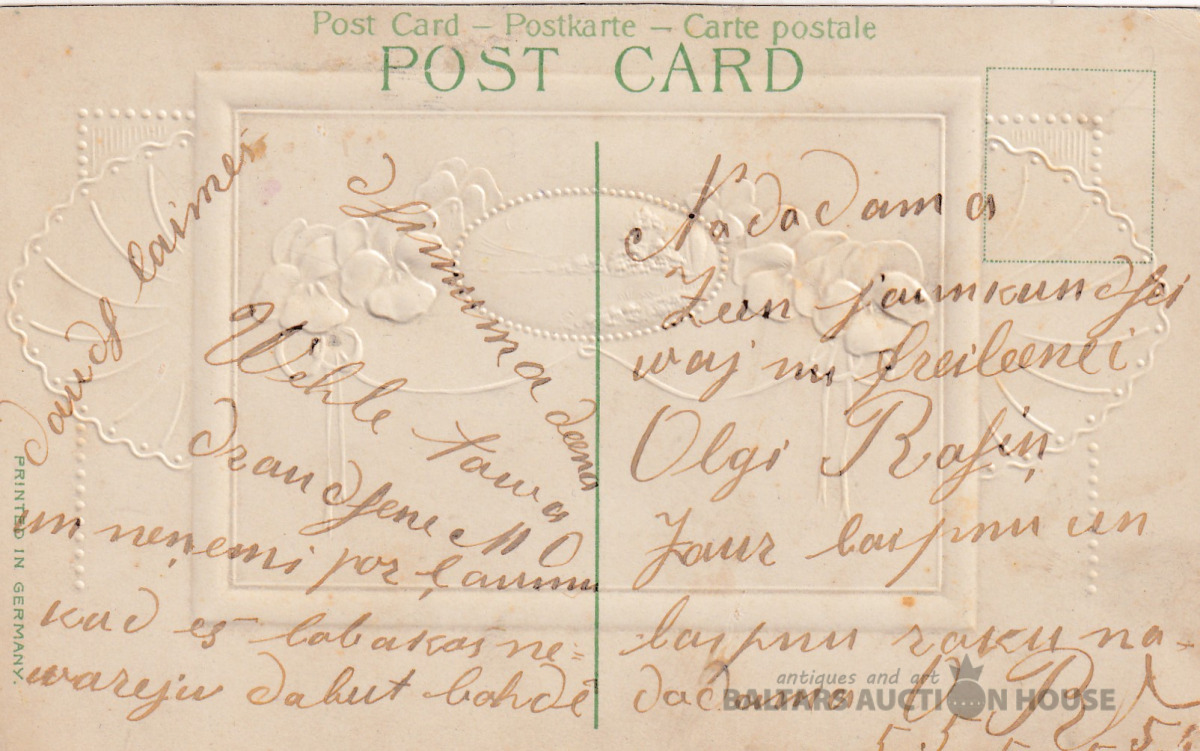 Post Card – Postkarte – Carte postale
POST CARD
daudz laimes
Dsimuma deena
Wehle tawa
draudsene M O
un neņemi por ļaunu
kad es labakas ne=
wareju dabut bohde
Nododama
Zeen jaunkundsei
waj nu freileenei
Olgi Rosiņ
Zaur laipnu un
laipnu roku no-
dodama
PRINTED IN GERMANY.
antiques and art
BALTARS AUCTION HOUSE